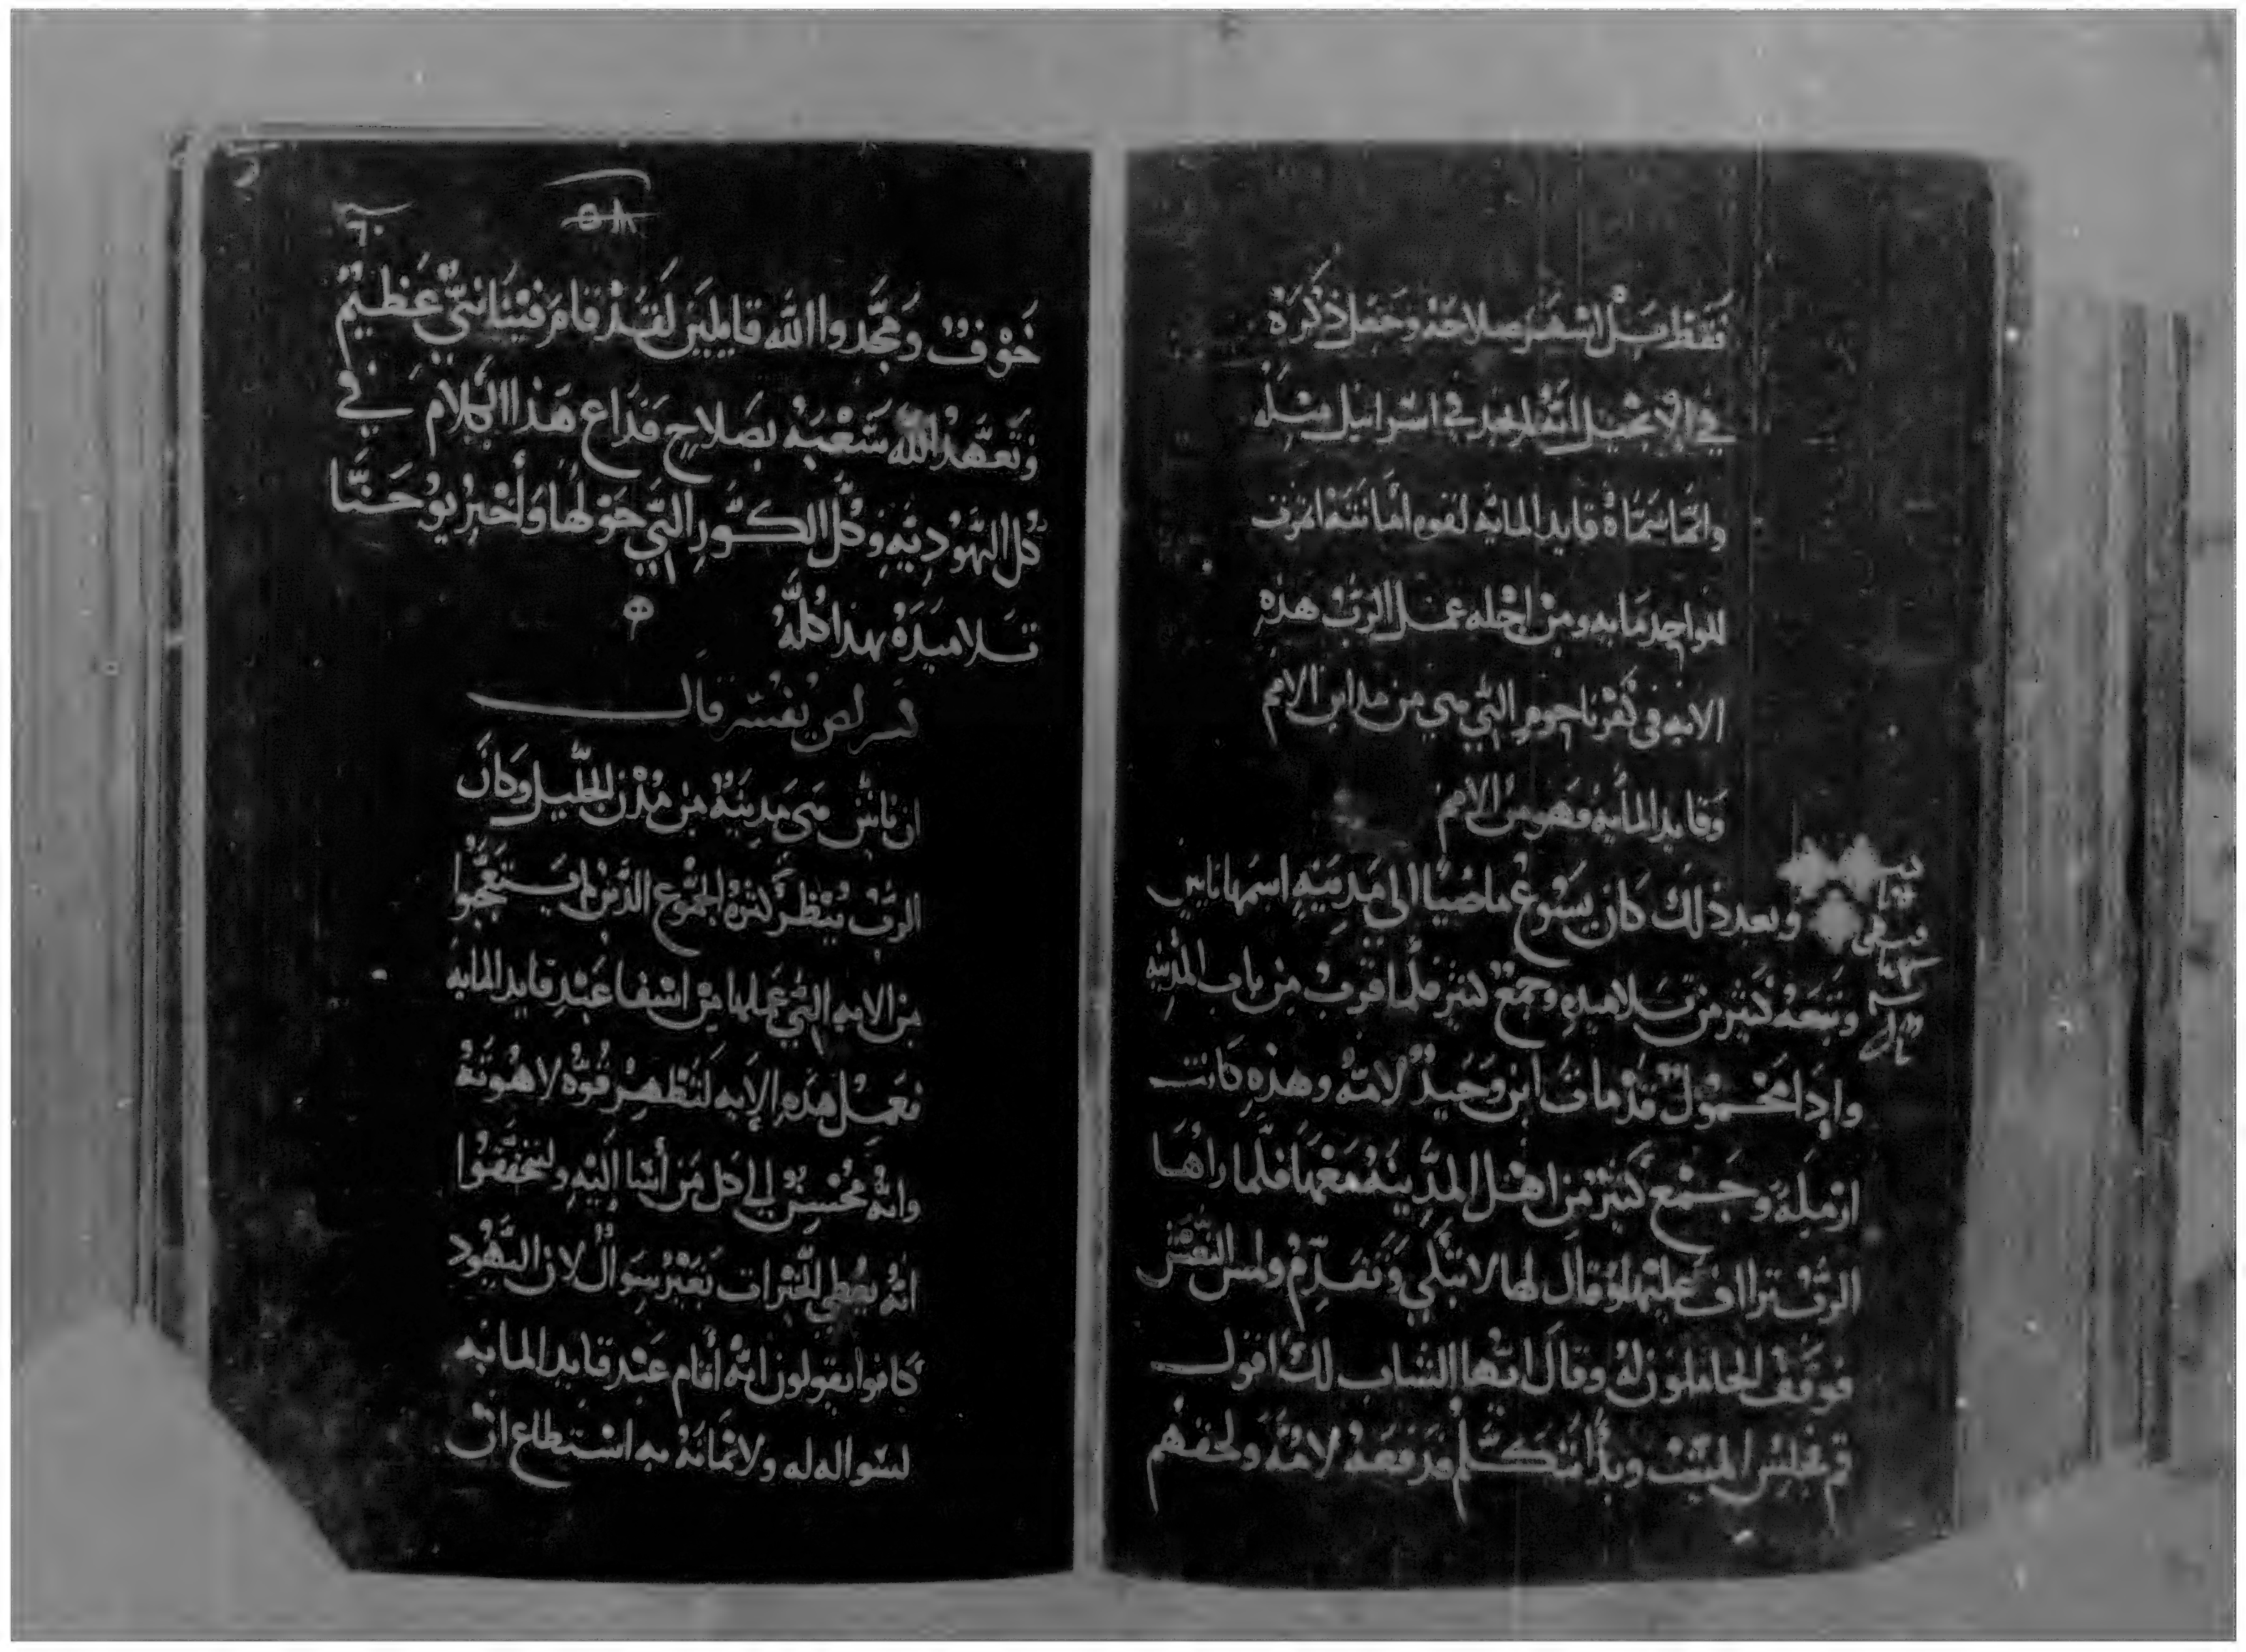 فقط بل اشهر صلاحه وجعل ذكره
في الانجيل انه لم يجد في اسرائيل مثله
وانما سماه قايد المايه لقوه امانته اذ عرف
للواحد مايه ومن اجله عمل الرب هذه
الايه في كفرناحوم التي هي من مداين الامم
وقايد المايه فهو من الامم
وبعد ذلك كان يسوع ماضيًا الي مدينهٍ اسمها نايين
وتبعهُ كثير من تلاميذه وجمعٌ كثير فلما قرب من باب المدينه
واذا محمولٌ قد مات ابن وحيدٌ لامه وهذه كانت
ارمله وجمعٌ كثيرٌ من اهل المدينه معها فلما راها
الرب تراأف عليها وقال لها لا تبكي وتقدم ولمس النعش
فوقف الحاملون له وقال ايها الشاب لك اقول
قم فجلس الميت وبدأ يتكلم فدفعه لامه ولحقهم
٦٠
٥٨
خوفٌ ومجدوا الله قايلين لقد قام فينا نبيٌ عظيمٌ
وتعهد الله شعبه بصلاحٍ فذاع هذا الكلام في
كل اليهوديه وكل الكور التي حولها وأخبر يوحنا
تلاميذه بهذا كله
قال
ان نايين هي مدينهٌ من مدن الجليل وكان
الرب ينتظر كثرة الجموع الذين لم يستعجبوا
من الايه التي عملها من اشفا عبد قايد المايه
فعمل هذه الايه لتظهر قوه لاهوته
وانه محسن الي كل من أتا اليه وليتحققوا
انه يعطي الخيرات بغير سوال لان اليهود
كانوا يقولون انه أقام عبد قايد المايه
لسواله له ولايمانه به استطاع ان